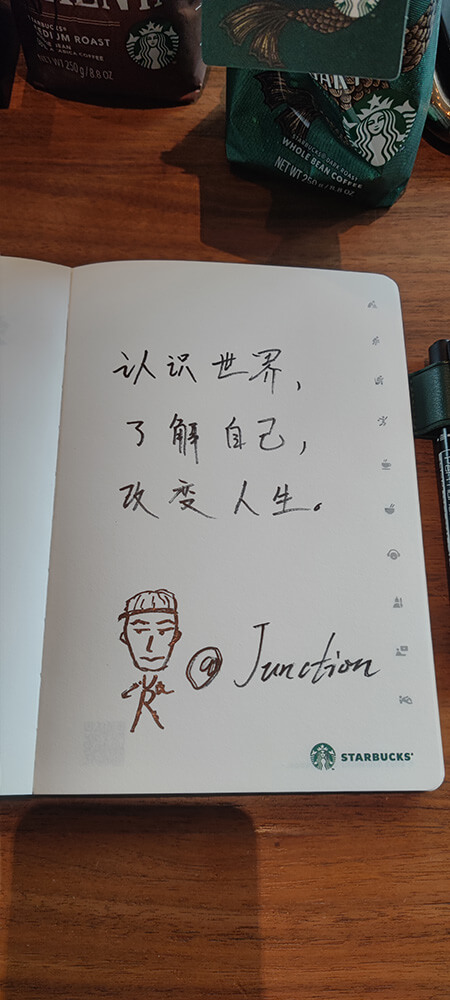 MEDIUM ROAST
NET WT 250g/8.8 OZ
STARBUCKS® DARK ROAST
WHOLE BEAN COFFEE
NET WT 250g/8.8 OZ
认识世界，
了解自己，
改变人生。
@ Junction
STARBUCKS®